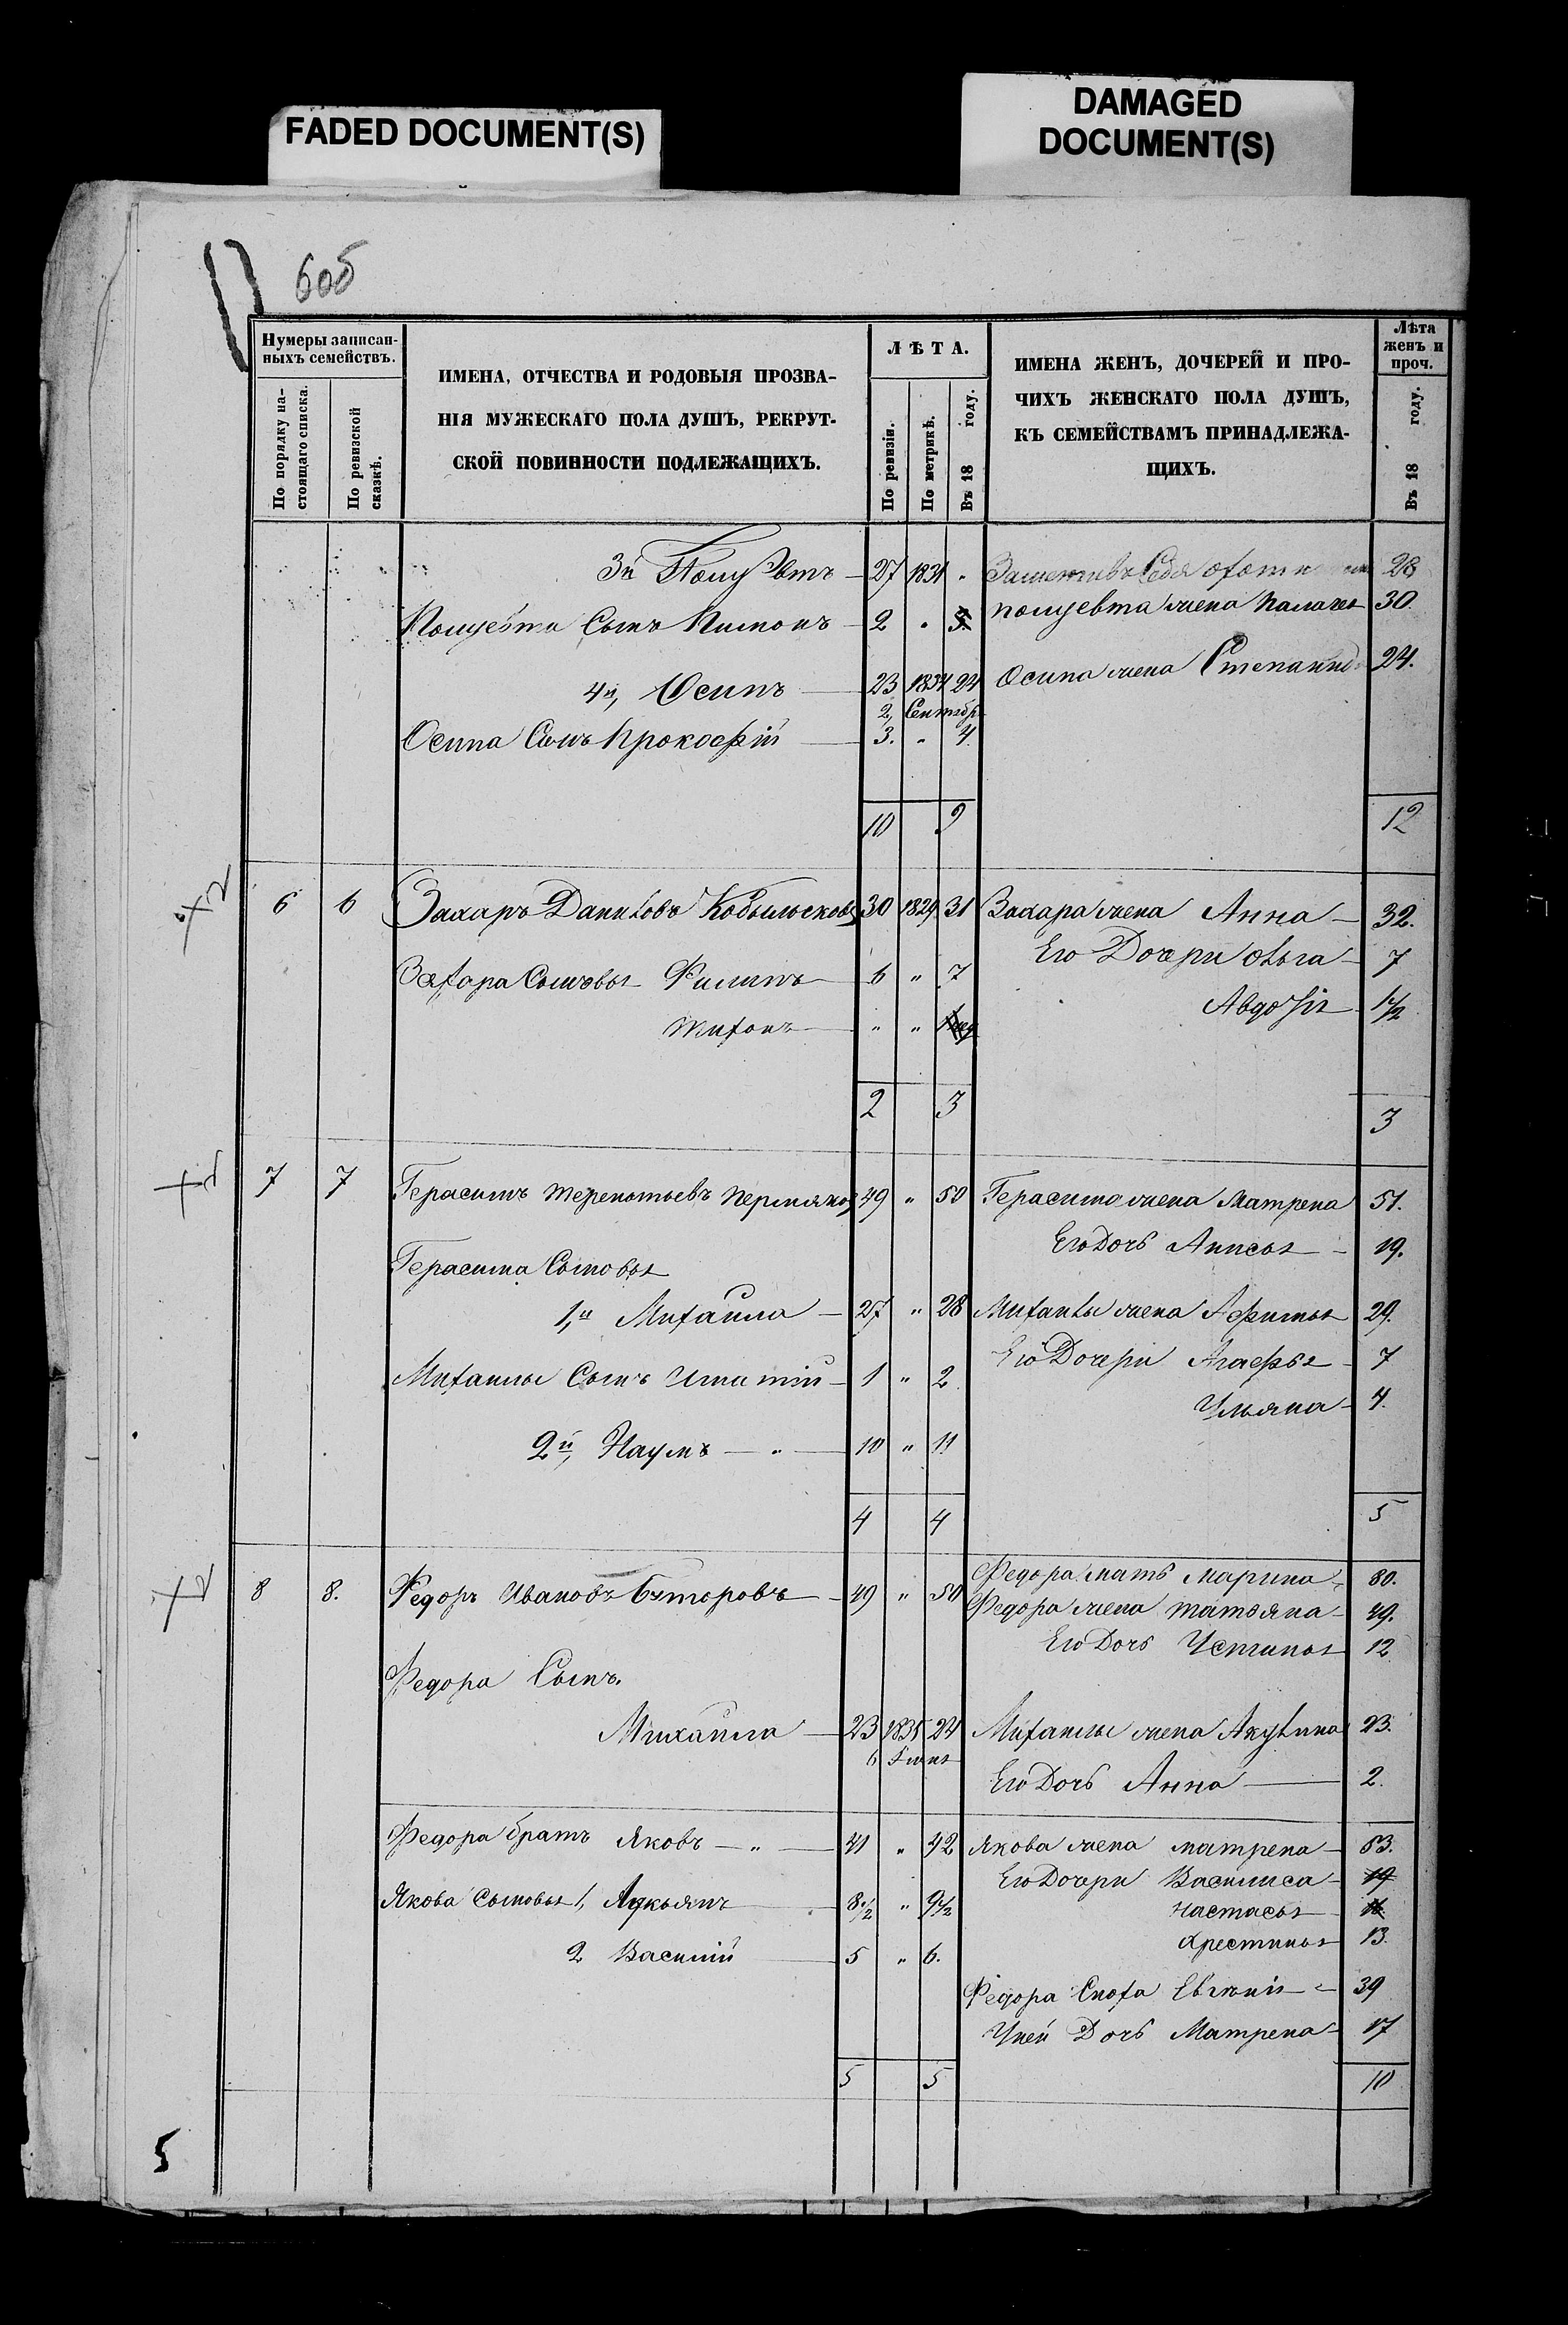 FADED DOCUMENT(S)
DAMAGED
DOCUMENT(S)
Нумеры записан-
ныхъ семействъ.
По порядку на-
стоящаго списка.
По ревизской
сказкѣ.
ИМЕНА, ОТЧЕСТВА И РОДОВЫЯ ПРОЗВА-
НІЯ МУЖЕСКАГО ПОЛА ДУШЪ, РЕКРУТ-
СКОЙ ПОВИННОСТИ ПОДЛЕЖАЩИХЪ.
ЛѢТА.
По ревизіи.
По метрикѣ.
Въ 18 году.
ИМЕНА ЖЕНЪ, ДОЧЕРЕЙ И ПРО-
ЧИХЪ ЖЕНСКАГО ПОЛА ДУШЪ,
КЪ СЕМЕЙСТВАМЪ ПРИНАДЛЕЖА-
ЩИХЪ.
Лѣта
женъ и
проч.
Въ 18 году.
3й Полуэвтъ 27 1831 "
28
Полуевта Сынъ Пимонъ 2 " 3. полуевта жена Палагея 30.
4й, Осипъ 23 1834 24 Осипа жена Степанида 24.
2, Сентябр.
Осипа Сынъ Прокофій 3. " 4.
10 9 12
6 6 Захаръ Даниловъ Кобыльсковъ 30 1829 31 Захара жена Анна 32.
Его Дочери Ольга 7
Захара Сыновья Филипъ 6 " 7
Авдотья 1 1/2
Тихонъ " "
2 3 3
7 7 Герасимъ Терентьевъ Пермяковъ 49 " 50 Герасима жена Матрена 51.
Его Дочь Анисья 19.
Герасима Сыновья
1,й Михаила 27 " 28 Михаилы жена Афимья 29.
Его Дочери Агафья 7
Михаилы Сынъ Игнатій 1 " 2
Ульяна 4.
2й, Наумъ " 10 " 11
4 4 5
8 8. Федоръ Ивановъ Бяторовъ 49 " 50 Федора мать Марина 80.
Федора жена Татьяна 49.
Его Дочь Устинья 12
Федора Сынъ.
Михаила 23 1835 24 Михаилы жена Акулина 23.
6 Іюня
Его Дочь Анна 2.
Федора братъ Яковъ " 41 " 42 Якова жена Матрена 53.
Его Дочери Василиса 19
Якова Сыновья 1, Лукьянъ 8 1/2 " 9 1/2
Настасья
Хрестинья 13.
2 Василій 5 " 6.
Федора Сноха Евгенія 39
Уней Дочь Матрена 17
5 5 10
5